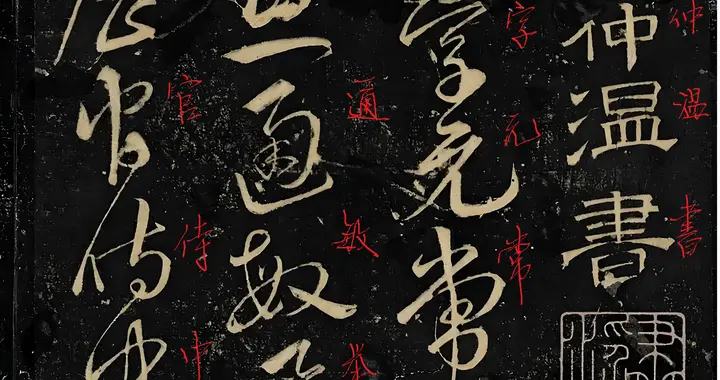 仲温書
仲温書
字元常
字元常
通敏
通敏举
官侍中
官侍中